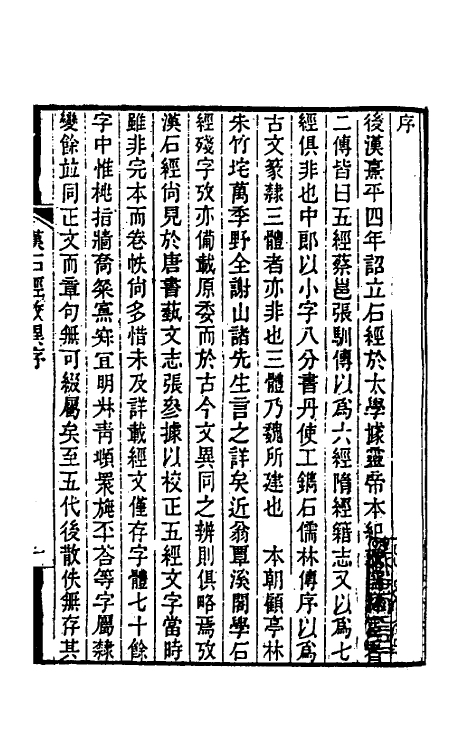 序
後漢熹平四年詔立石經於太學據靈帝本紀
二傳皆曰五經蔡邕張馴傳以爲六經隋經籍志又以爲七
經俱非也中郎以小字八分書丹使工鐫石儒林傳序以爲
古文篆隸三體者亦非也三體乃魏所建也　本朝顧亭林
朱竹垞萬季野全謝山諸先生言之詳矣近翁覃溪閣學石
經殘字攷亦備載原委而於古今文異同之辨則俱略焉攷
漢石經尙見於唐書藝文志張參據以校正五經文字當時
雖非完本而卷帙尙多惜未及詳載經文僅存字體七十餘
字中惟桃指牆喬粲寡宑宜明犮靑頓罘旐㔻荅等字屬隸
變餘竝同正文而章句無可綴屬矣至五代後散佚無存其
漢石經攷異序
一